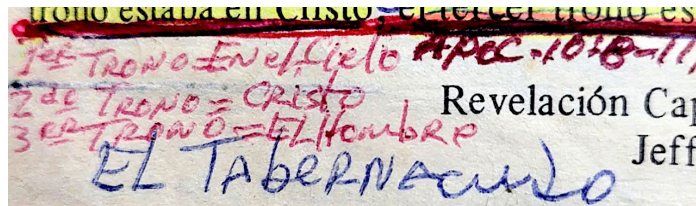 trono estaba en Cristo, el tercer trono es
1er TRONO=EN el Cielo APOC-10:8-11
2do TRONO=CRISTO Revelación Cap
3er TRONO=EL HOMBRE Jeff
EL TABERNACULO